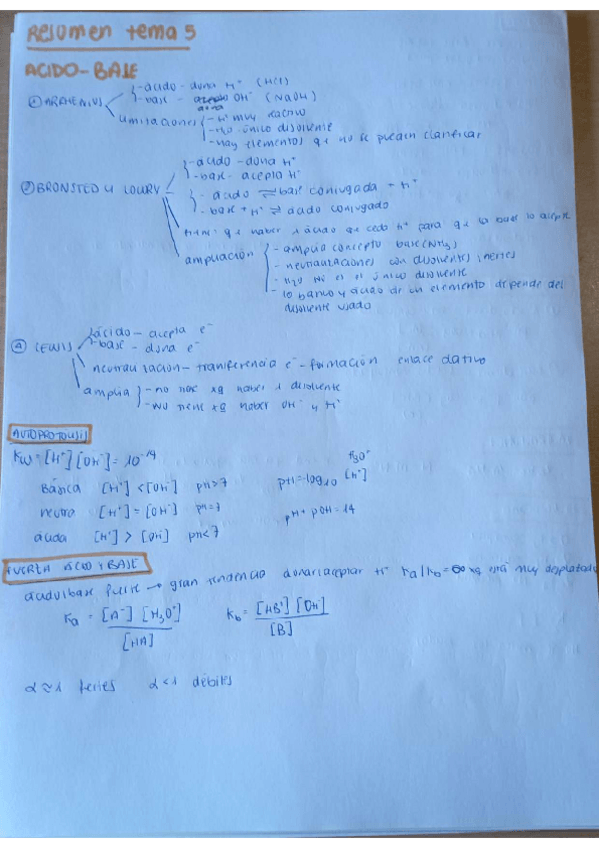 Resumen tema 5
ACIDO-BASE
① ARRHENIUS
- ácido - dona H⁺ (HCl)
- base - dona OH⁻ (NaOH)
limitaciones
- H⁺ muy reactivo
- H₂O único disolvente
- Hay elementos q no se pueden clasificar
② BRONSTED Y LOWRY
- ácido - dona H⁺
- base - acepta H⁺
- ácido ⇌ base conjugada + H⁺
- base + H⁺ ⇌ ácido conjugado
tiene q haber 1 ácido que ceda H⁺ para q la base lo acepte
ampliación
- amplia concepto base (NH₃)
- neutralizaciones con disolventes inertes
- H₂O no es el único disolvente
- lo básico y ácido de un elemento depende del
disolvente usado
④ LEWIS
ácido - acepta e⁻
- base - dona e⁻
neutralización - transferencia e⁻ - formación enlace dativo
amplia
- no tiene xq haber 1 disolvente
- no tiene xq haber OH⁻ y H⁺
AUTOPROTOLISIS
Kw = [H⁺] [OH⁻] = 10⁻¹⁴
H₃O⁺
Básica [H⁺] < [OH⁻] pH > 7
pH = -log₁₀ [H⁺]
neutra [H⁺] = [OH⁻] pH = 7
pH + pOH = 14
ácida [H⁺] > [OH⁻] pH < 7
FUERZA ÁCIDO Y BASE
ácido/base fuerte → gran tendencia donar/aceptar H⁺ Ka/Kb = ∞ xq está muy desplazada
Ka = [A⁻] [H₃O⁺] / [HA]
Kb = [HB⁺] [OH⁻] / [B]
α ≈ 1 fuertes α < 1 débiles